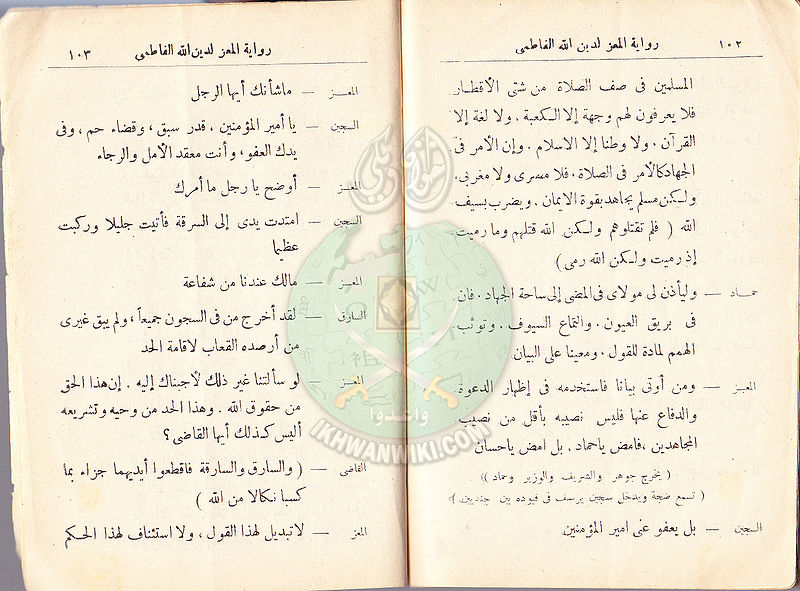 ١٠٢ رواية المعز لدين الله الفاطمى
المسلمين فى صف الصلاة من شتى الأقطار
فلا يعرفون لهم وجهة إلا الكعبة . ولا لغة إلا
القرآن . ولا وطنا إلا الاسلام . وإن الأمر فى
الجهاد كالأمر فى الصلاة . فلا مصرى ولا مغربى .
ولكن مسلم يجاهد بقوة الايمان . ويضرب بسيف
الله ( فلم تقتلوهم ولكن الله قتلهم وما رميت
إذ رميت ولكن الله رمى )
حماد — وليأذن لى مولاى فى المضى إلى ساحة الجهاد . فان
فى بريق العيون . والتماع السيوف . وتوثب
الهمم لمادة للقول . ومعينا على البيان
المعز — ومن أوتى بيانا فاستخدمه فى إظهار الدعوة
والدفاع عنها فليس نصيبه بأقل من نصيب
المجاهدين ، فامض ياحماد . بل امض ياحسان
( يخرج جوهر والشريف والوزير وحماد )
( تسمع ضجة ويدخل سجين يرسف فى قيوده بين جنديين )
السجين — بل يعفو عنى امير المؤمنين
رواية المعز لدين الله الفاطمى ١٠٣
المعز — ماشأنك أيها الرجل
السجين — يا أمير المؤمنين ، قدر سبق ، وقضاء حم ، وفى
يدك العفو ، وأنت معقد الأمل والرجاء
المعز — أوضح يا رجل ما أمرك
السجين — امتدت يدى إلى السرقة فأتيت جليلا وركبت
عظيما
المعز — مالك عندنا من شفاعة
السارق — لقد أخرج من فى السجون جميعاً ، ولم يبق غيرى
من أرصده القعاب لاقامة الحد
المعز — لو سألتنا غير ذلك لأجبناك إليه . إن هذا الحق
من حقوق الله . وهذا الحد من وحيه وتشريعه
أليس كذلك أيها القاضى ؟
القاضى — ( والسارق والسارقة فاقطعوا أيديهما جزاء بما
كسبا نكالا من الله )
المعز — لا تبديل لهذا القول ، ولا استئناف لهذا الحكم
وأعدوا
IKHWANWIKI.COM